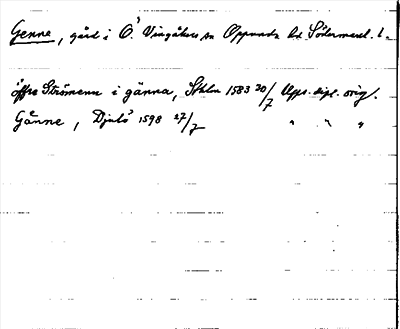 Genne, gård i Ö. Vingåkers sn Oppunda hd Södermanl. l.
öffre Strömenn i gänna, Sthlm 1583 20/7 Upps. dipl. orig.
Gänne, Djulö 1598 27/7 " " "